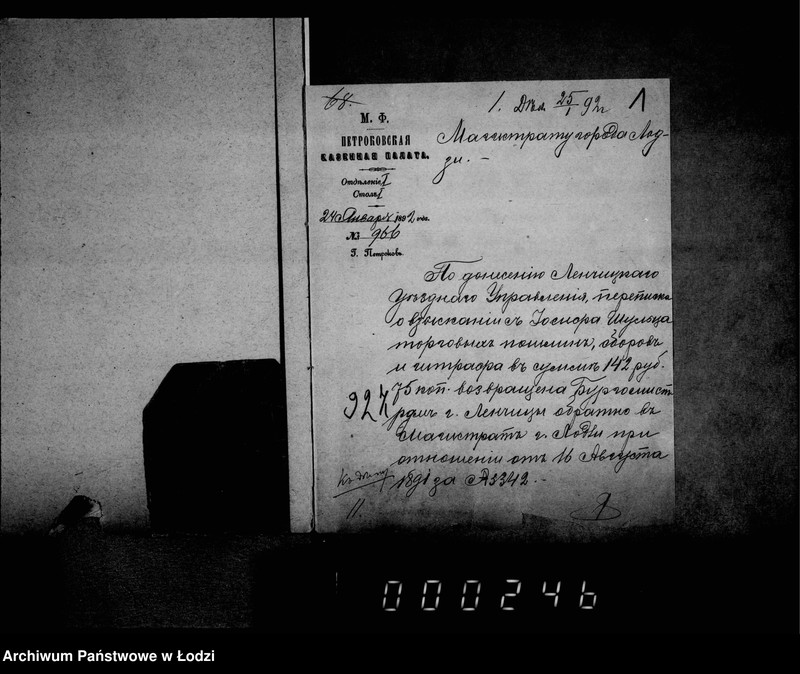 68.
1. Дѣл. 25/1 92 г.
1
М. Ф.
ПЕТРОКОВСКАЯ
КАЗЕННАЯ ПАЛАТА.
Отдѣленіе I
Столъ I
24 Январ 1892 года.
№ 966
Г. Петроковъ.
Магистрату города Лод-
зи. -
По донесенію Ленчицкаго
Уѣзднаго Управленія, переписка
о взысканіи съ Іосифа Шульца
торговыхъ пошлинъ, сборовъ
и штрафа въ суммѣ 142 руб.
75 коп. возвращена Бургомист
ромъ г. Ленчицы обратно въ
Магистратъ г. Лодзи при
отношеніи отъ 16 Августа
1891 за № 3342. -
924
Къ дѣлу
11.
000246
Archiwum Państwowe w Łodzi